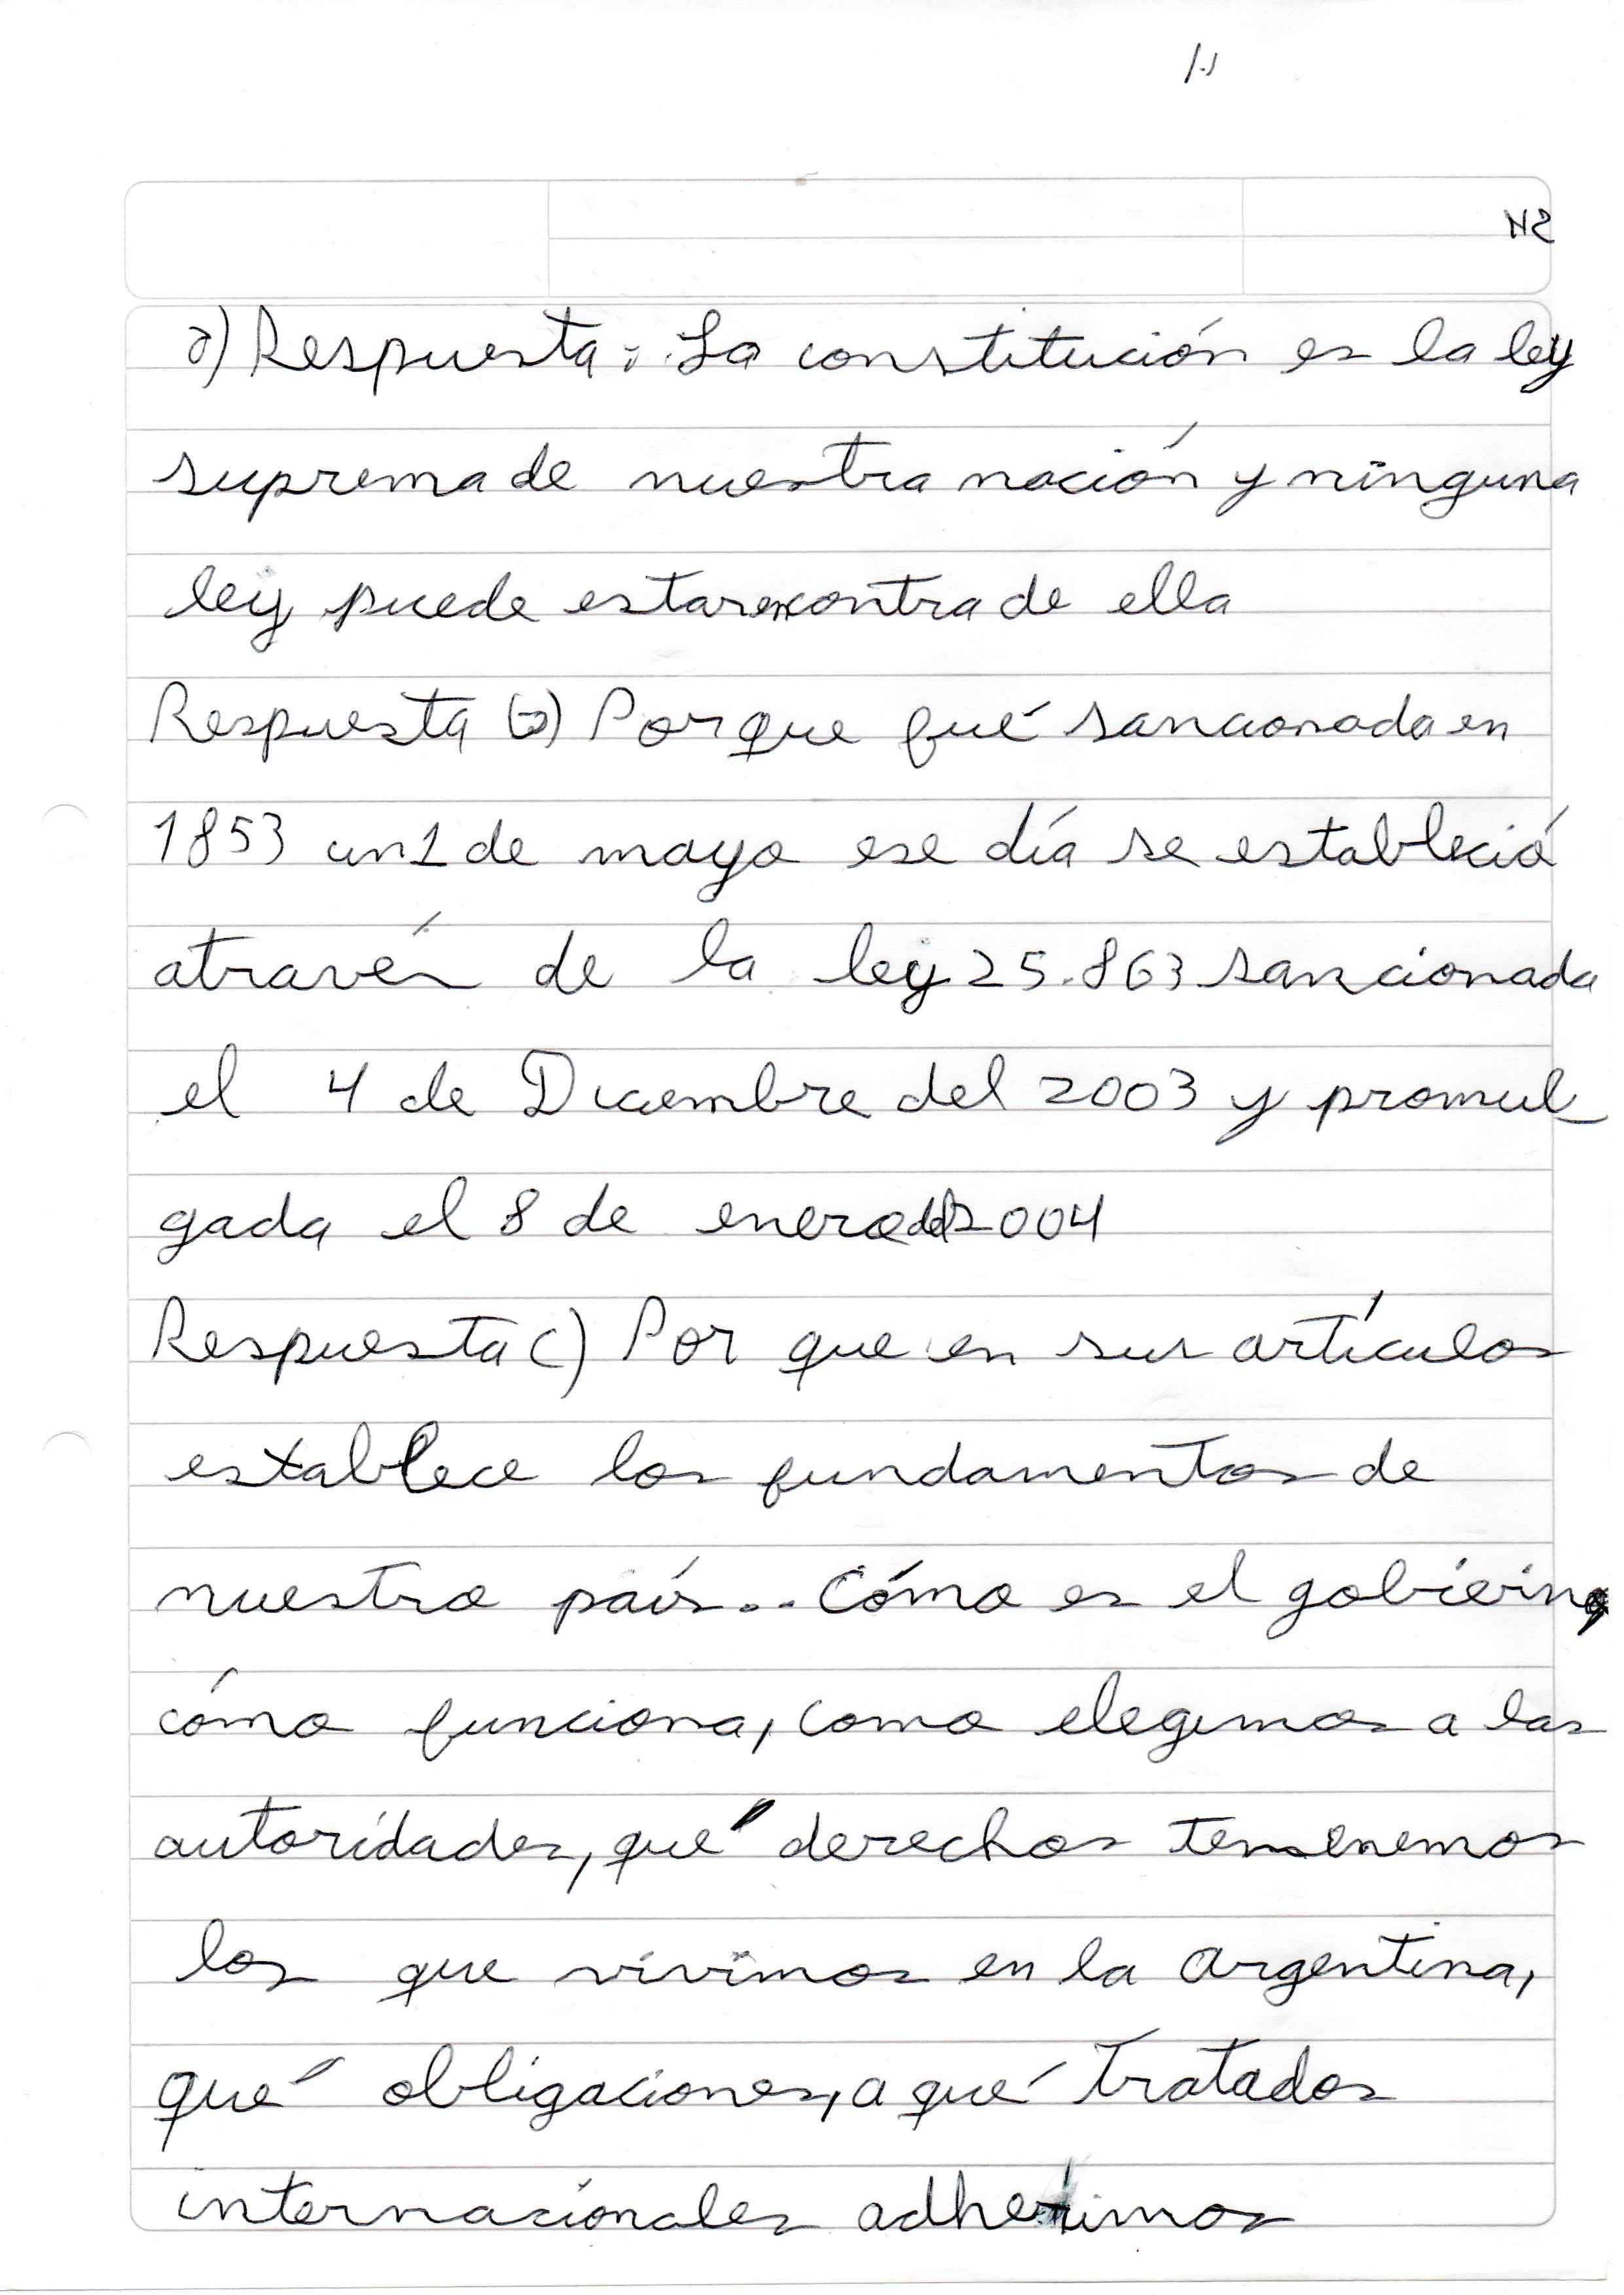 N2
a) Respuesta: La constitución es la ley
suprema de nuestra nación y ninguna
ley puede estar en contra de ella
Respuesta b) Porque fué sancionada en
1853 un 1 de mayo ese día se estableció
através de la ley 25.863 sancionada
el 4 de Diciembre del 2003 y promul
gada el 8 de enero del 2004
Respuesta c) Por que en sus artículos
establece los fundamentos de
nuestro país.. Cómo es el gobierno,
cómo funciona, como elegimos a las
autoridades, qué derechos tenenemos
los que vivimos en la Argentina,
qué obligaciones, a qué tratados
internacionales adherimos